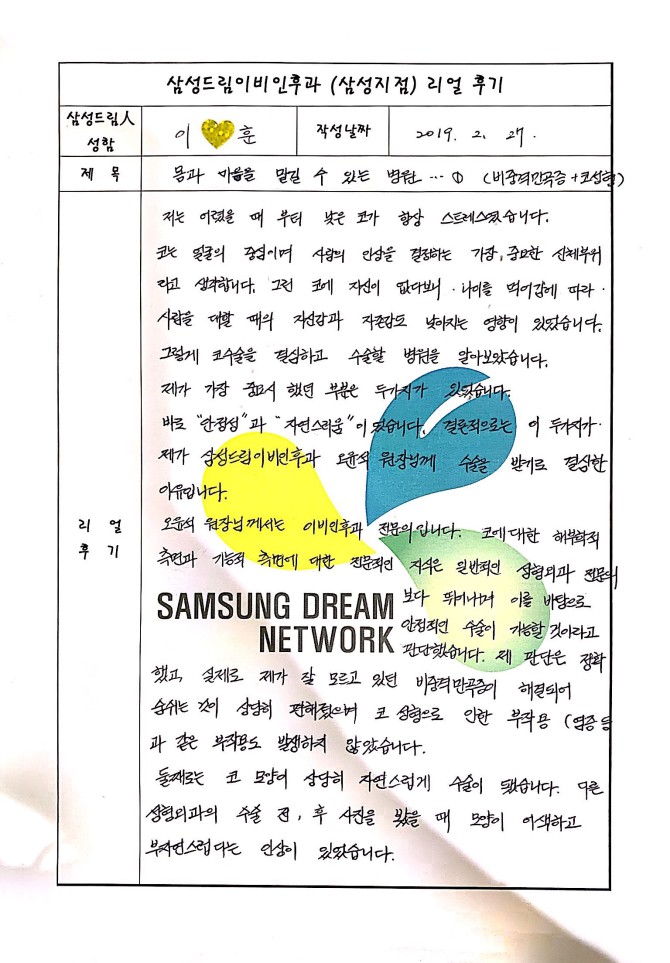 삼성드림이비인후과 (삼성지점) 리얼 후기
삼성드림人 성함
이 훈
작성날짜
2019. 2. 27.
제 목
몸과 마음을 맡길 수 있는 병원 … ① (비중격만곡증+코성형)
리 얼 후 기
저는 어렸을 때 부터 낮은 코가 항상 스트레스였습니다.
코는 얼굴의 중심이며 사람의 인상을 결정하는 가장, 중요한 신체부위
라고 생각합니다. 그런 코에 자신이 없다보니 나이를 먹어감에 따라
사람을 대할 때의 자신감과 자존감도 낮아지는 영향이 있었습니다.
그렇게 코수술을 결심하고 수술할 병원을 알아보았습니다.
제가 가장 중요시 했던 부분은 두가지가 있었습니다.
바로 "안정성"과 "자연스러움"이었습니다. 결론적으로는 이 두가지가
제가 삼성드림이비인후과 오윤석 원장님께 수술을 받기로 결심한
이유입니다.
오윤석 원장님께서는 이비인후과 전문의입니다. 코에 대한 해부학적
측면과 기능적 측면에 대한 전문적인 지식은 일반적인 성형외과 전문의
보다 뛰어나며 이를 바탕으로
안정적인 수술이 가능할 것이라고
판단했습니다. 제 판단은 정확
SAMSUNG DREAM
NETWORK
했고, 실제로 제가 잘 모르고 있던 비중격만곡증이 해결되어
숨쉬는 것이 상당히 편해졌으며 코 성형으로 인한 부작용 (염증 등
과 같은 부작용도 발생하지 않았습니다.
둘째로는 코 모양이 상당히 자연스럽게 수술이 됐습니다. 다른
성형외과의 수술 전, 후 사진을 봤을 때 모양이 어색하고
부자연스럽다는 인상이 있었습니다.